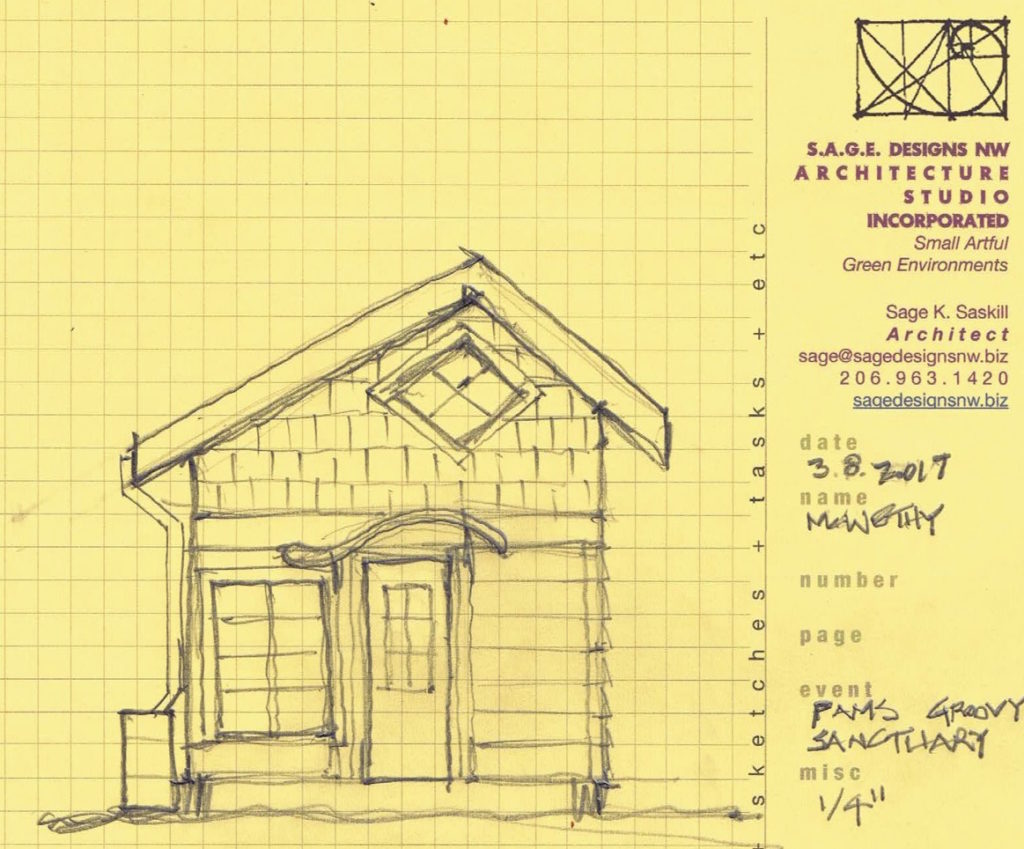 S.A.G.E. DESIGNS NW
ARCHITECTURE
STUDIO
INCORPORATED
Small Artful
Green Environments
Sage K. Saskill
Architect
sage@sagedesignsnw.biz
206.963.1420
sagedesignsnw.biz
date
3.8.2017
name
McWETHY
number
page
event
PAMS GROOVY
SANCTUARY
misc
1/4"
sketches + tasks + etc